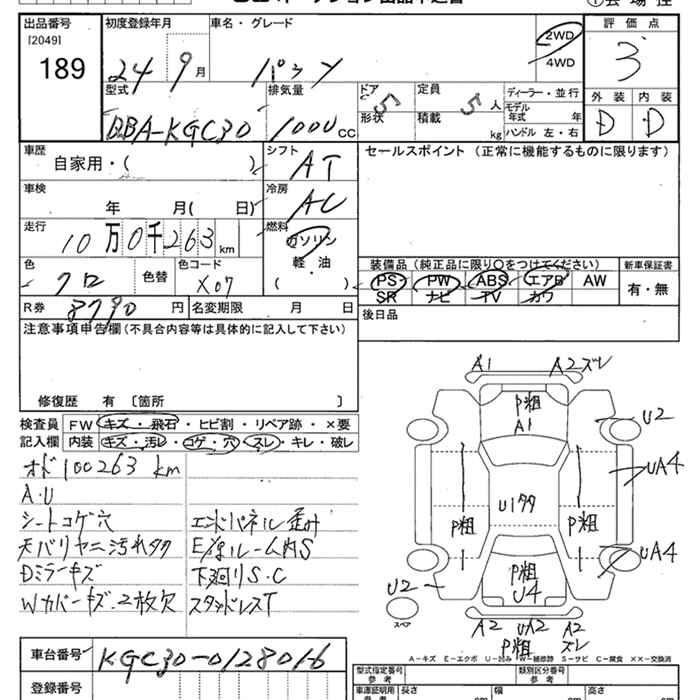 出品番号
[2049]
189
初度登録年月
24 9月
車名・グレード
パッソ
2WD
4WD
評価点
3
外装 内装
D D
型式
DBA-KGC30
排気量
1000 CC
ドア
5
形状
定員
5 人
積載
kg
ディーラー・並行
モデル年式 年
ハンドル 左・右
車歴
自家用・( )
シフト
AT
車検
年 月( 日)
冷房
AC
走行
10万0千263 km
燃料
ガソリン
軽・油
( )
色
クロ
色替
色コード
X07
R券
8790 円
名変期限 月 日
セールスポイント (正常に機能するものに限ります)
装備品 (純正品に限り〇をつけてください)
PS PW ABS エアB AW
SR ナビ TV カワ
新車保証書
有・無
後日品
注意事項申告欄(不具合内容等は具体的に記入して下さい)
修復歴 有 〔箇所 〕
検査員
記入欄
FW キズ・飛石・ヒビ割・リペア跡・×要
内装 キズ・汚レ・コゲ・穴・スレ・キレ・破レ
オド100263 km
A.U
シートコゲ穴
天バリヤニ汚れタク
Dミラーキズ
Wカバーキズ.2枚欠
エンドパネル歪み
E/gルーム内S
下廻りS.C
スタッドレスT
A1 A2ズレ
P粗
A1
U2
UA4
P粗
U1タタ
P粗
UA4
P粗
U4
U2
スペア
A2 UA2 A2
P粗 ズレ
A-キズ E-エクボ U-凹み W-補修跡 S-サビ C-腐食 XX-交換済
車台番号
KGC30-0128016
登録番号
型式指定番号
参考
類別区分番号
参考
車庫証明用
参考
長さ
幅
高さ